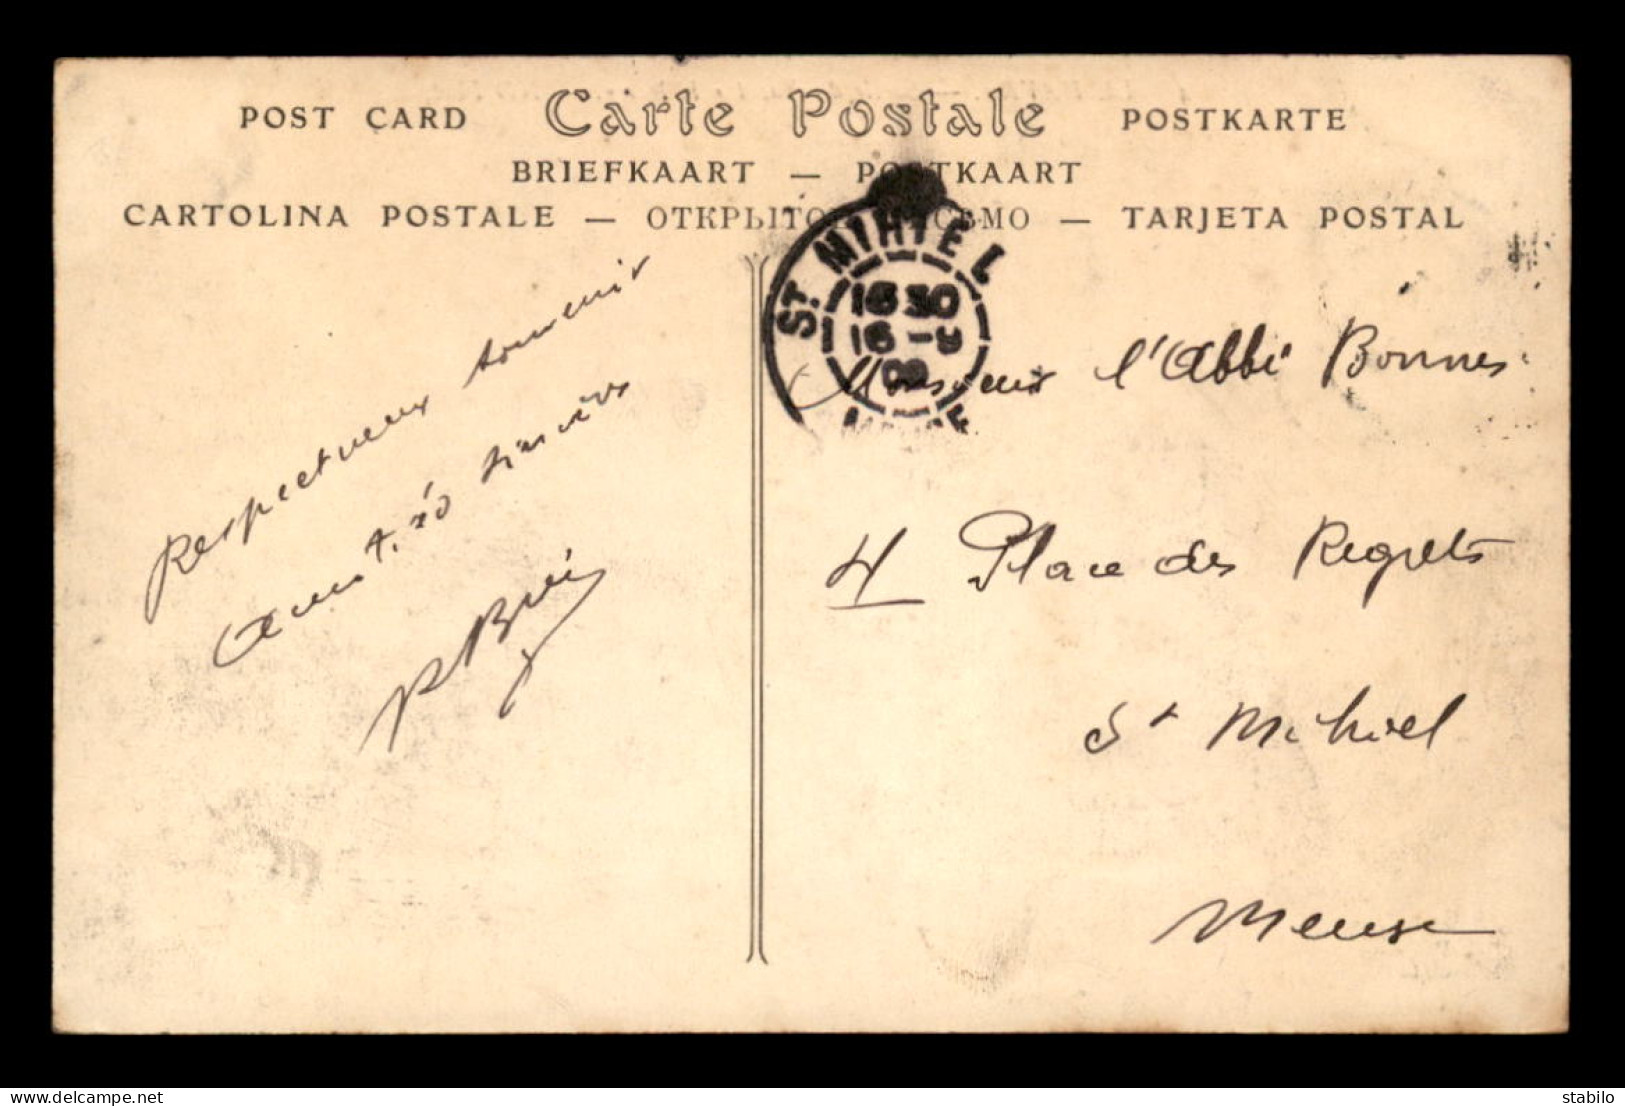 POST CARD Carte Postale POSTKARTE
BRIEFKAART — POSTKAART
CARTOLINA POSTALE — ОТКРЫТОЕ ПИСЬМО — TARJETA POSTAL
ST MIHIEL
MEUSE
Respectueux souvenir
Amitiés sincères
Monsieur l'Abbé Bonnes
4 Place des Regrets
St Mihiel
Meuse
delcampe.net
stabilo